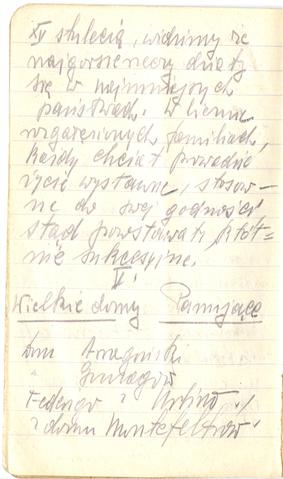 XV stulecia, widzimy że
najgorsze rzeczy działy
się w najmniejszych
państwach. W licznie
rozgałęzionych familiach,
każdy chciał prowadzić
życie wystawne, stosow-
ne do swej godności
stąd powstawały kłót-
nie sukcesyjne.
II.
Wielkie domy Panujące
Dom Aragoński
" Gonzagów
Federigo z Urbino
z domu Montefeltrów